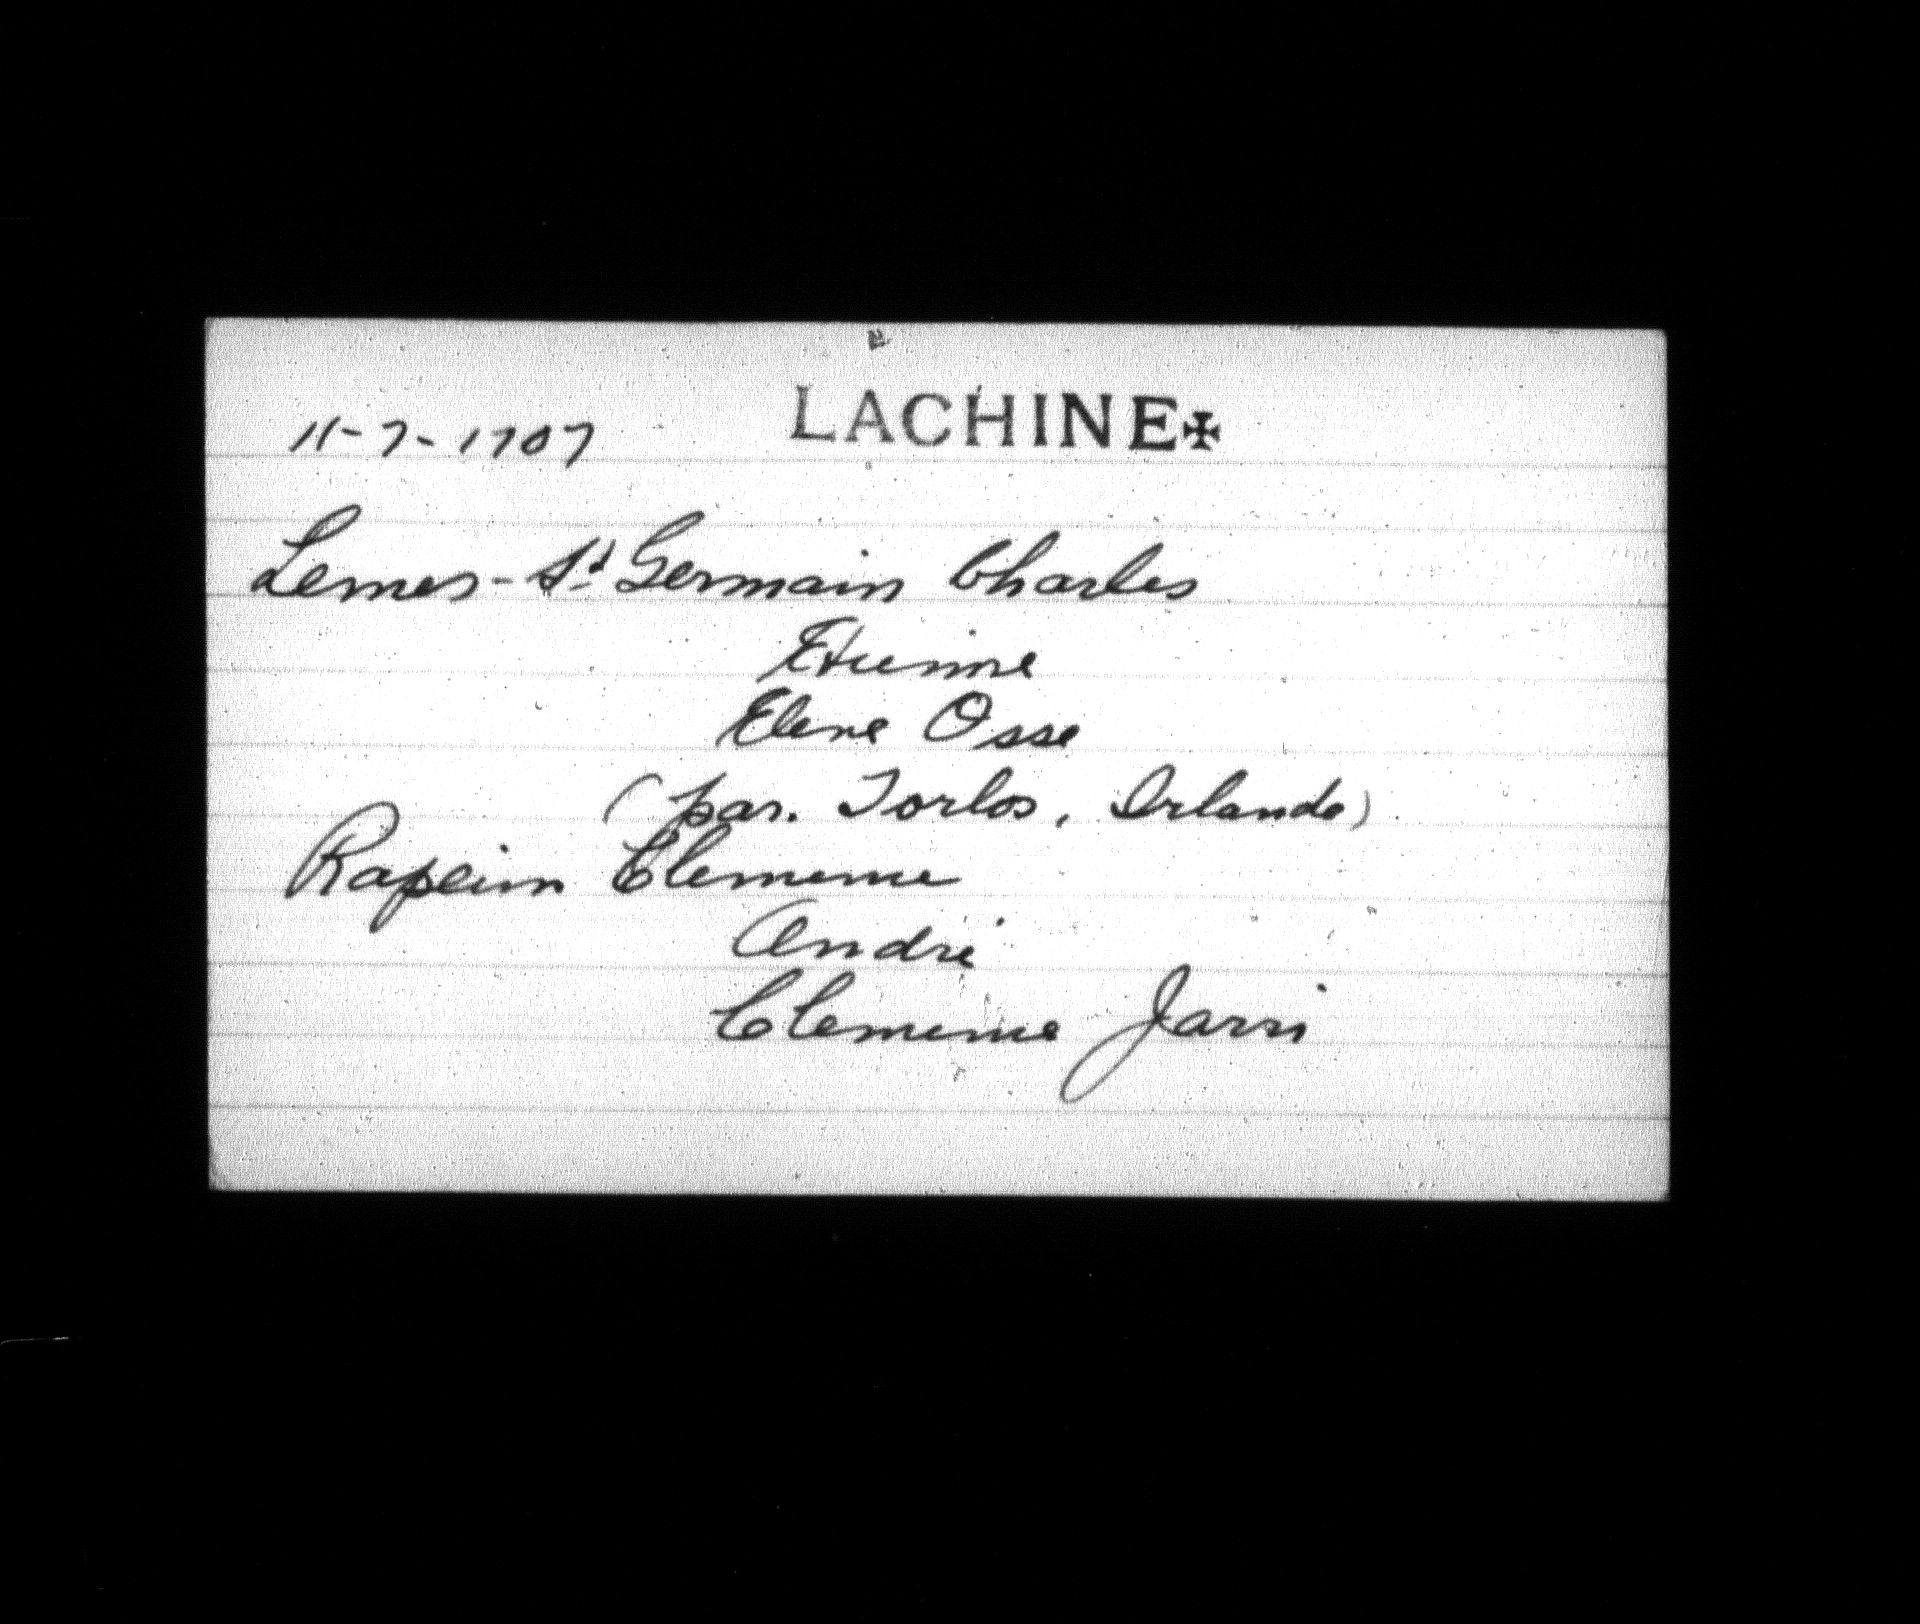 11-7-1707 LACHINE✠
Lemes-St Germain Charles
Etienne
Elene Osse
(par. Torlos, Irlande)
Rapein Clemence
André
Clemence Jarri